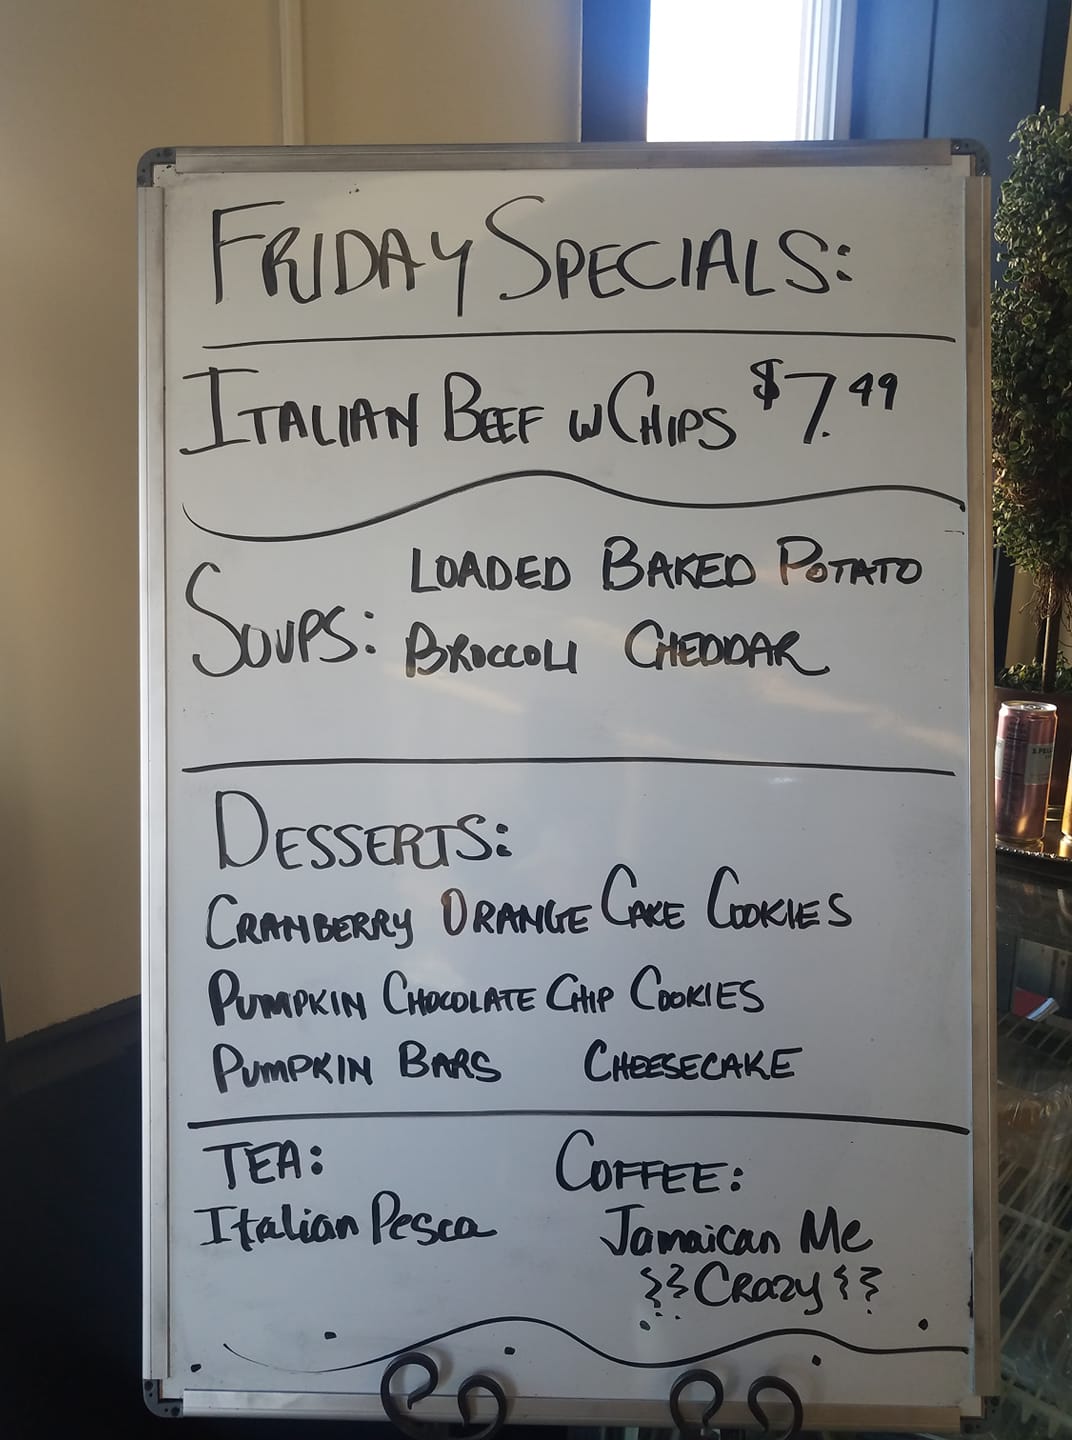 FRIDAY SPECIALS:
ITALIAN BEEF W CHIPS $7.49
SOUPS: LOADED BAKED POTATO
BROCCOLI CHEDDAR
DESSERTS:
CRANBERRY ORANGE CAKE COOKIES
PUMPKIN CHOCOLATE CHIP COOKIES
PUMPKIN BARS CHEESECAKE
TEA:
Italian Pesca
COFFEE:
Jamaican Me
CRAZY